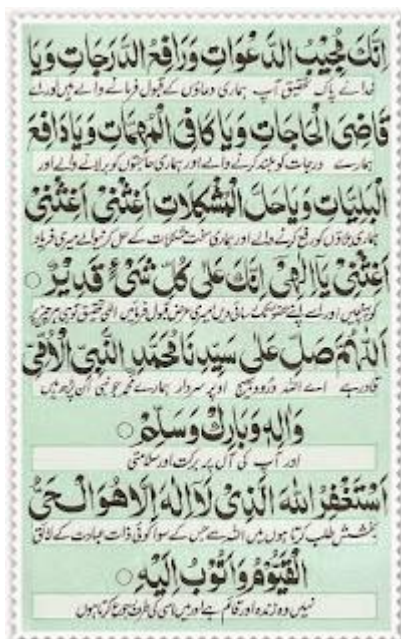 اِنَّكَ مُجِيْبُ الدَّعْوَاتِ وَرَافِعُ الدَّرَجَاتِ وَيَا
خدائے پاک تحقیق آپ ہماری دعاؤں کے قبول فرمانے والے ہیں اور اے
قَاضِىَ الْحَاجَاتِ وَيَا كَافِىَ الْمُهِمَّاتِ وَيَا دَافِعَ
ہمارے درجات کو بلند کرنے والے اور ہماری حاجتوں کو بر لانے والے اور
الْبَلِيَّاتِ وَيَا حَلَّ الْمُشْكِلَاتِ اَغِثْنِىْ اَغِثْنِىْ
ہماری بلاؤں کو رفع کرنے والے اور ہماری سخت مشکلات کے حل کرنیوالے میری فریاد
اَغِثْنِىْ يَآ اِلٰهِىْ اِنَّكَ عَلٰى كُلِّ شَىْءٍ قَدِيْرٌ ○
کو پہنچیں اور اے اپنے تک میری عرض قبول فرمائیں الٰہی تحقیق تو ہی ہر چیز پر
اَللّٰهُمَّ صَلِّ عَلٰى سَيِّدِنَا مُحَمَّدِ ِ النَّبِىِّ الْاُمِّىِّ
قادر ہے اے اللہ درود بھیج اوپر سردار ہمارے محمد جو نبی ان پڑھ ہیں
وَاٰلِهٖ وَبَارِكْ وَسَلِّمْ ○
اور آپ کی آل پر برکت اور سلامتی
اَسْتَغْفِرُ اللهَ الَّذِىْ لَآ اِلٰهَ اِلَّا هُوَ الْحَىُّ
بخشش طلب کرتا ہوں میں اللہ سے جس کے سوا کوئی ذات عبادت کے لائق
الْقَيُّوْمُ وَاَتُوْبُ اِلَيْهِ ○
نہیں وہ زندہ اور قائم ہے اور میں اسی کی طرف رجوع کرتا ہوں